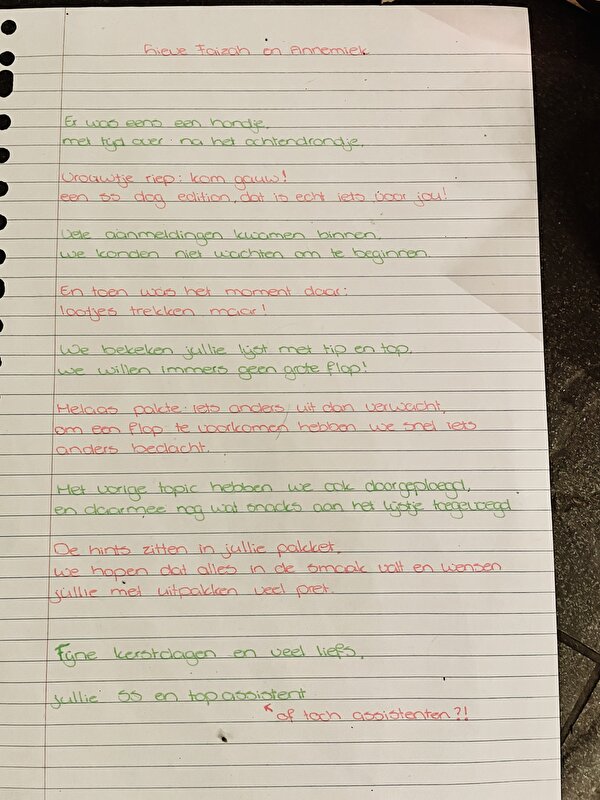 Lieve Faizah en Annemiek
Er was eens een hondje,
met tijd over na het ochtendrondje.
Vrouwtje riep: kom gauw!
een ss dog edition, dat is echt iets voor jou!
Vele aanmeldingen kwamen binnen,
we konden niet wachten om te beginnen.
En toen was het moment daar:
lootjes trekken maar!
We bekeken jullie lijst met tip en top,
we willen immers geen grote flop!
Helaas pakte iets anders uit dan verwacht,
om een flop te voorkomen hebben we snel iets
anders bedacht.
Het vorige topic hebben we ook doorgeploegd,
en daarmee nog wat snacks aan het lijstje toegevoegd
De hints zitten in jullie pakket,
we hopen dat alles in de smaak valt en wensen
jullie met uitpakken veel pret.
Fijne kerstdagen en veel liefs,
jullie ss en topassistent
of toch assistenten?!